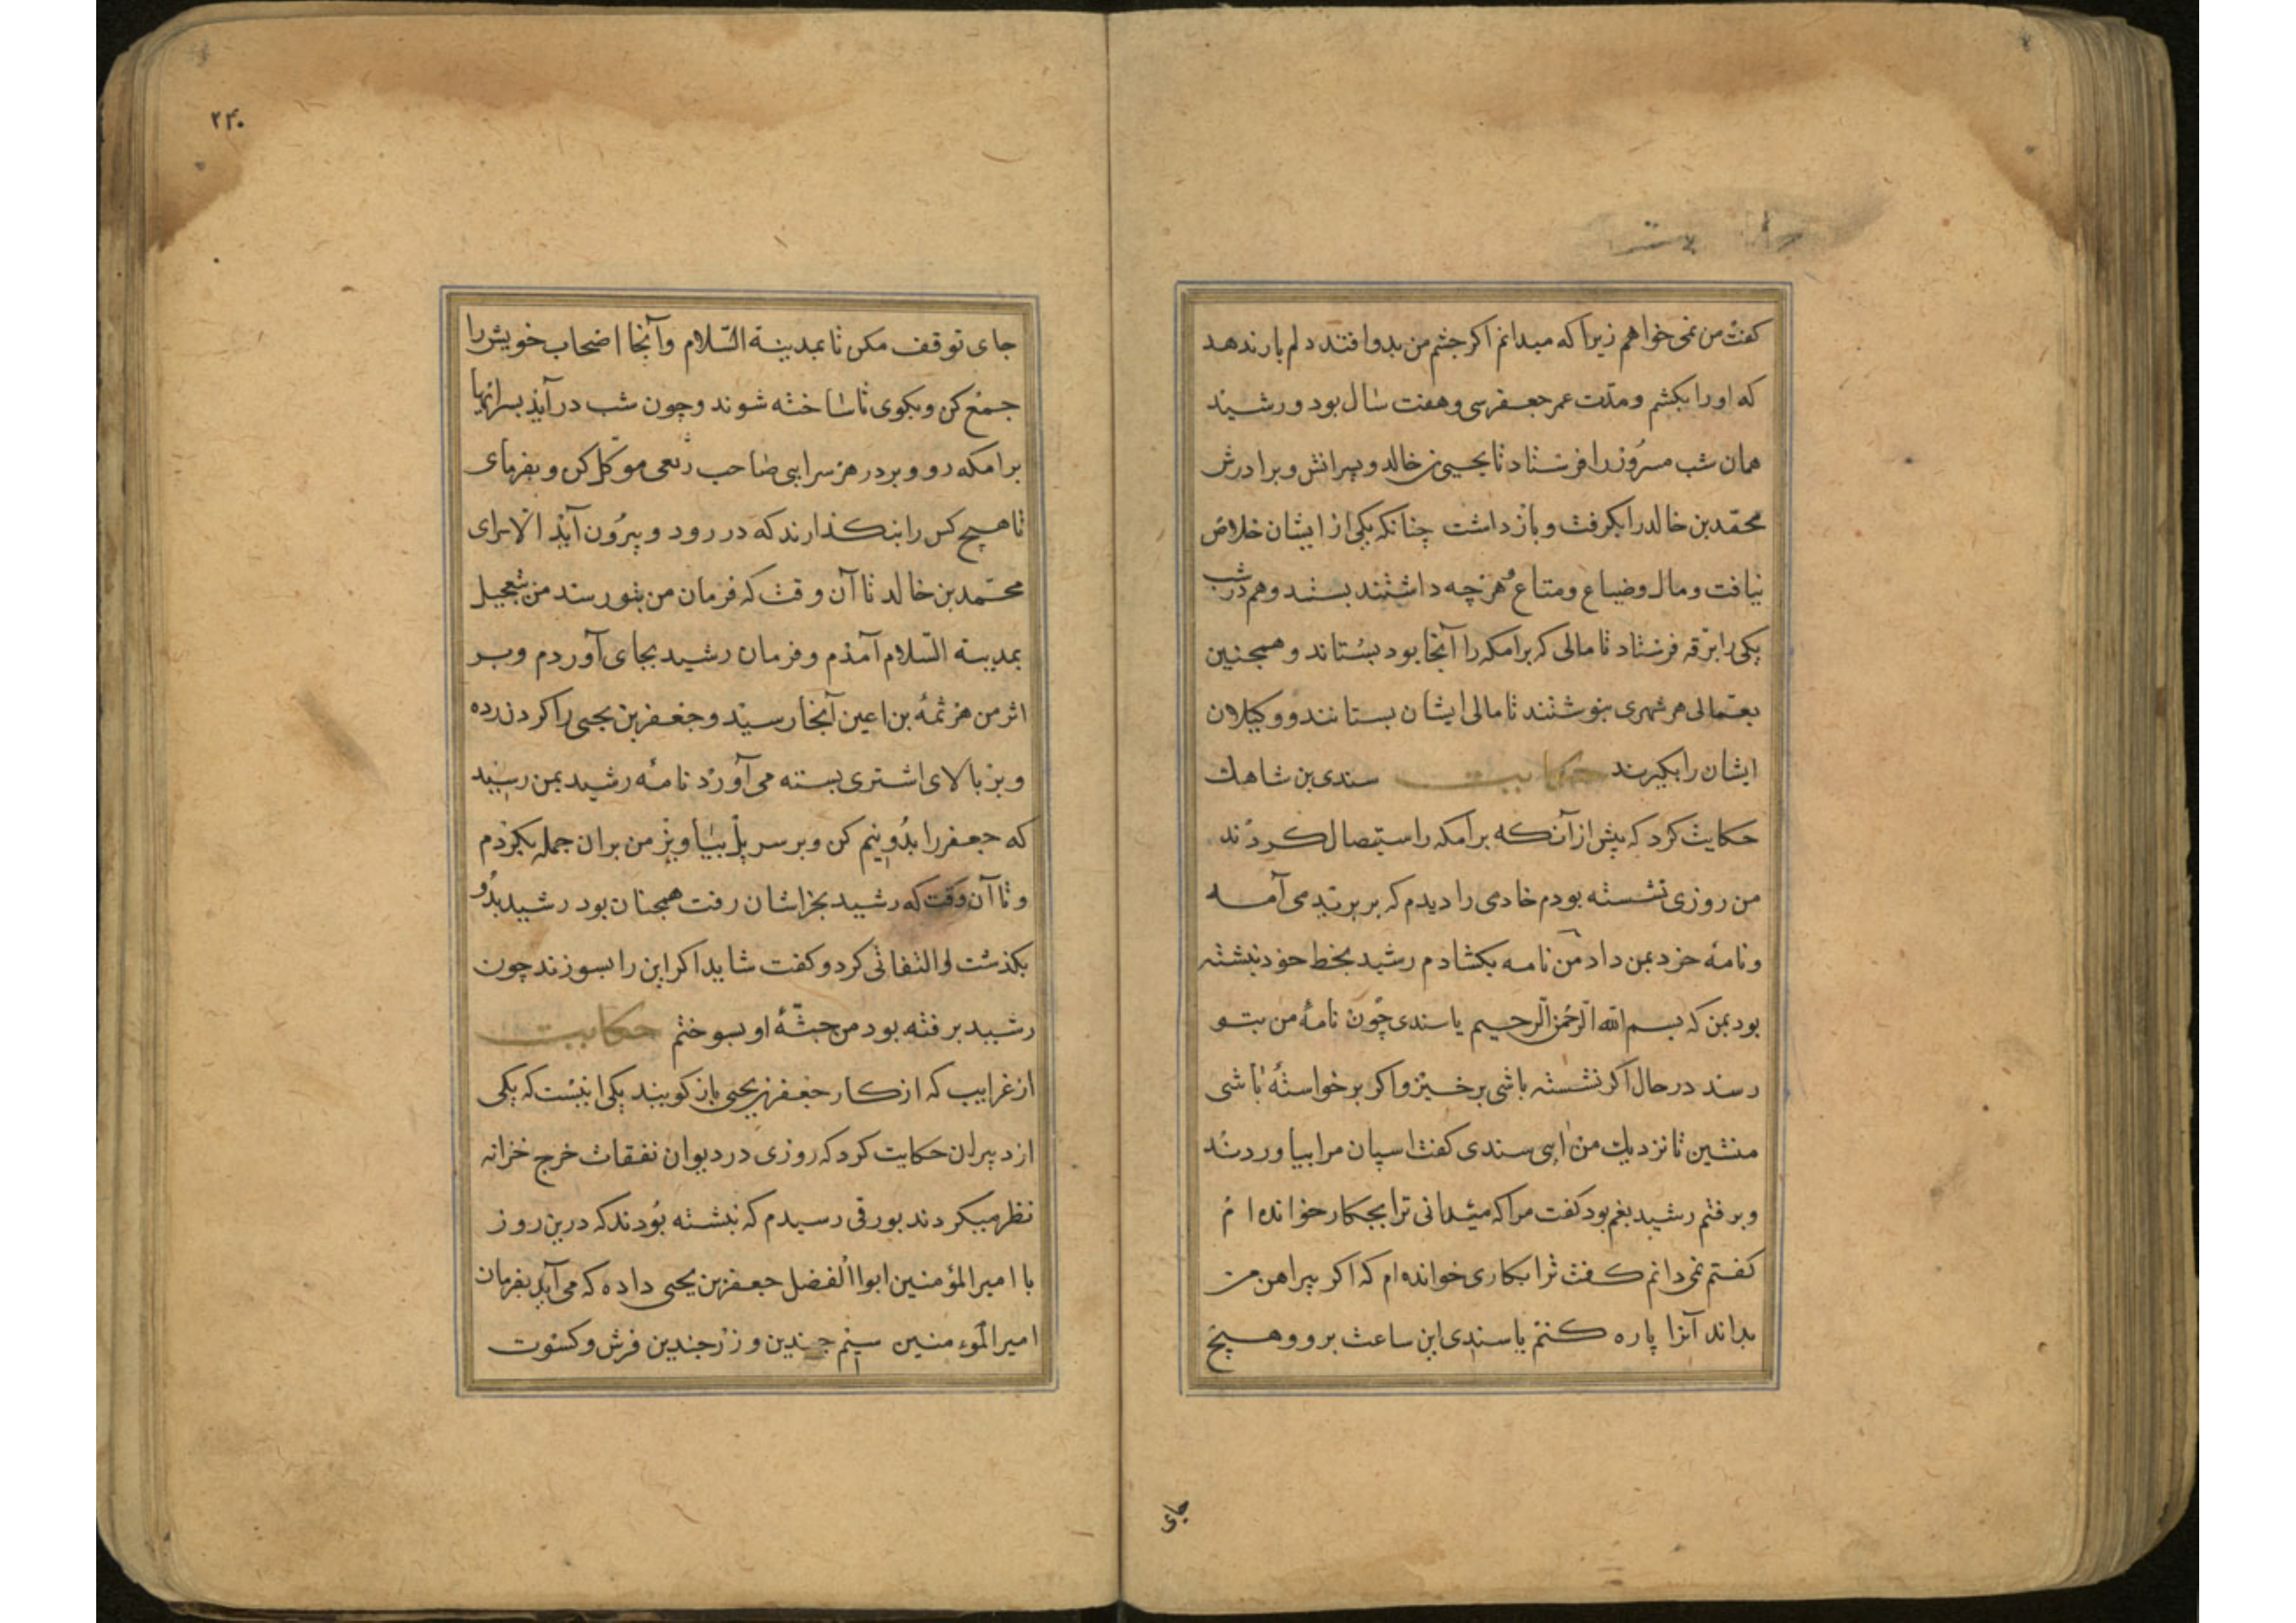 کفت من نمی خواهم زیرا که میدانم اکر چشم من بدو افتد دلم بار ندهد
که او را بکشم و مدّت عمر جعفر سی و هفت سال بود و رشید
همان شب مسرُور را فرستاد تا یحیی بن خالد و پسرانش و برادرش
محمّد بن خالد را بکرفت و باز داشت چنانکه یکی از ایشان خلاص
نیافت و مال و ضیاع و متاع و هرچه داشتند بستد و هم در شب
یکی را برقه فرستاد تا مالی که برامکه را آنجا بود بستاند و همچنین
بعمّالی هر شهری بنوشتند تا مالی ایشان بستانند و وکیلان
ایشان را بکیرند حکایت سندی بن شاهك
حکایت کرد که پیش از آنکه برامکه را ستیصال کردند
من روزی نشسته بودم خادمی را دیدم که بر برید می آمد
و نامهٔ خرد بمن داد من نامه بکشادم رشید بخط خود نبشته
بود بمن که بسم الله الرّحمن الرّحیم یا سندی چون نامهٔ من بتو
رسد در حال اکر نشسته باشی برخیز و اکر برخواستهٔ باشی
منشین تا نزدیك من ایی سندی کفت اسپان مرا بیاوردند
و برفتم رشید بغم بود کفت مرا که میدانی ترا بچکار خوانده ام
کفتم نمی دانم کفت ترا بکاری خوانده ام که اکر پیراهن من
بداند آنرا پاره کنم یا سندی این ساعت برو و هیچ
جای
۲۴۰
جای توقف مکن تا بمدینة السّلام و آنجا اصحاب خویش را
جمع کن و بکوی تا ساخته شوند و چون شب درآید بسرایهای
برامکه رو و بر در هر سرایی صاحب ربعی موکّل کن و بفرمای
تا هیچ کس را بنکذارند که در رود و بیرُون آید الّا سرای
محمّد بن خالد تا آن وقت که فرمان من بتو رسد من بتعجیل
بمدینة السّلام آمدم و فرمان رشید بجای آوردم و بر
اثر من هرثمه بن اعین آنجا رسید و جعفر بن یحیی را کردن زده
و بر بالای اشتری بسته می آورد نامهٔ رشید بمن رسید
که جعفر را بدُو نیم کن و بر سر پل بیاویز من بران جمله بکردم
و تا آن وقت که رشید بخراسان رفت همچنان بود رشید بدُو
بکذشت او التفاتی کرد و کفت شاید اکر این را بسوزند چون
رشید برفته بود من جثّهٔ او بسوختم حکایت
از غرایب که از کار جعفر بن یحیی باز کویند یکی اینست که یکی
از دبیران حکایت کرد که روزی در دیوان نفقات خرج خزانه
نظر میکردند بورقی رسیدم که نبشته بُودند که درین روز
با امیر المؤمنین ابوا الفضل جعفر بن یحیی داده که می آید بفرمان
امیر المؤمنین سیم چندین و زر چندین فرش و کسوت